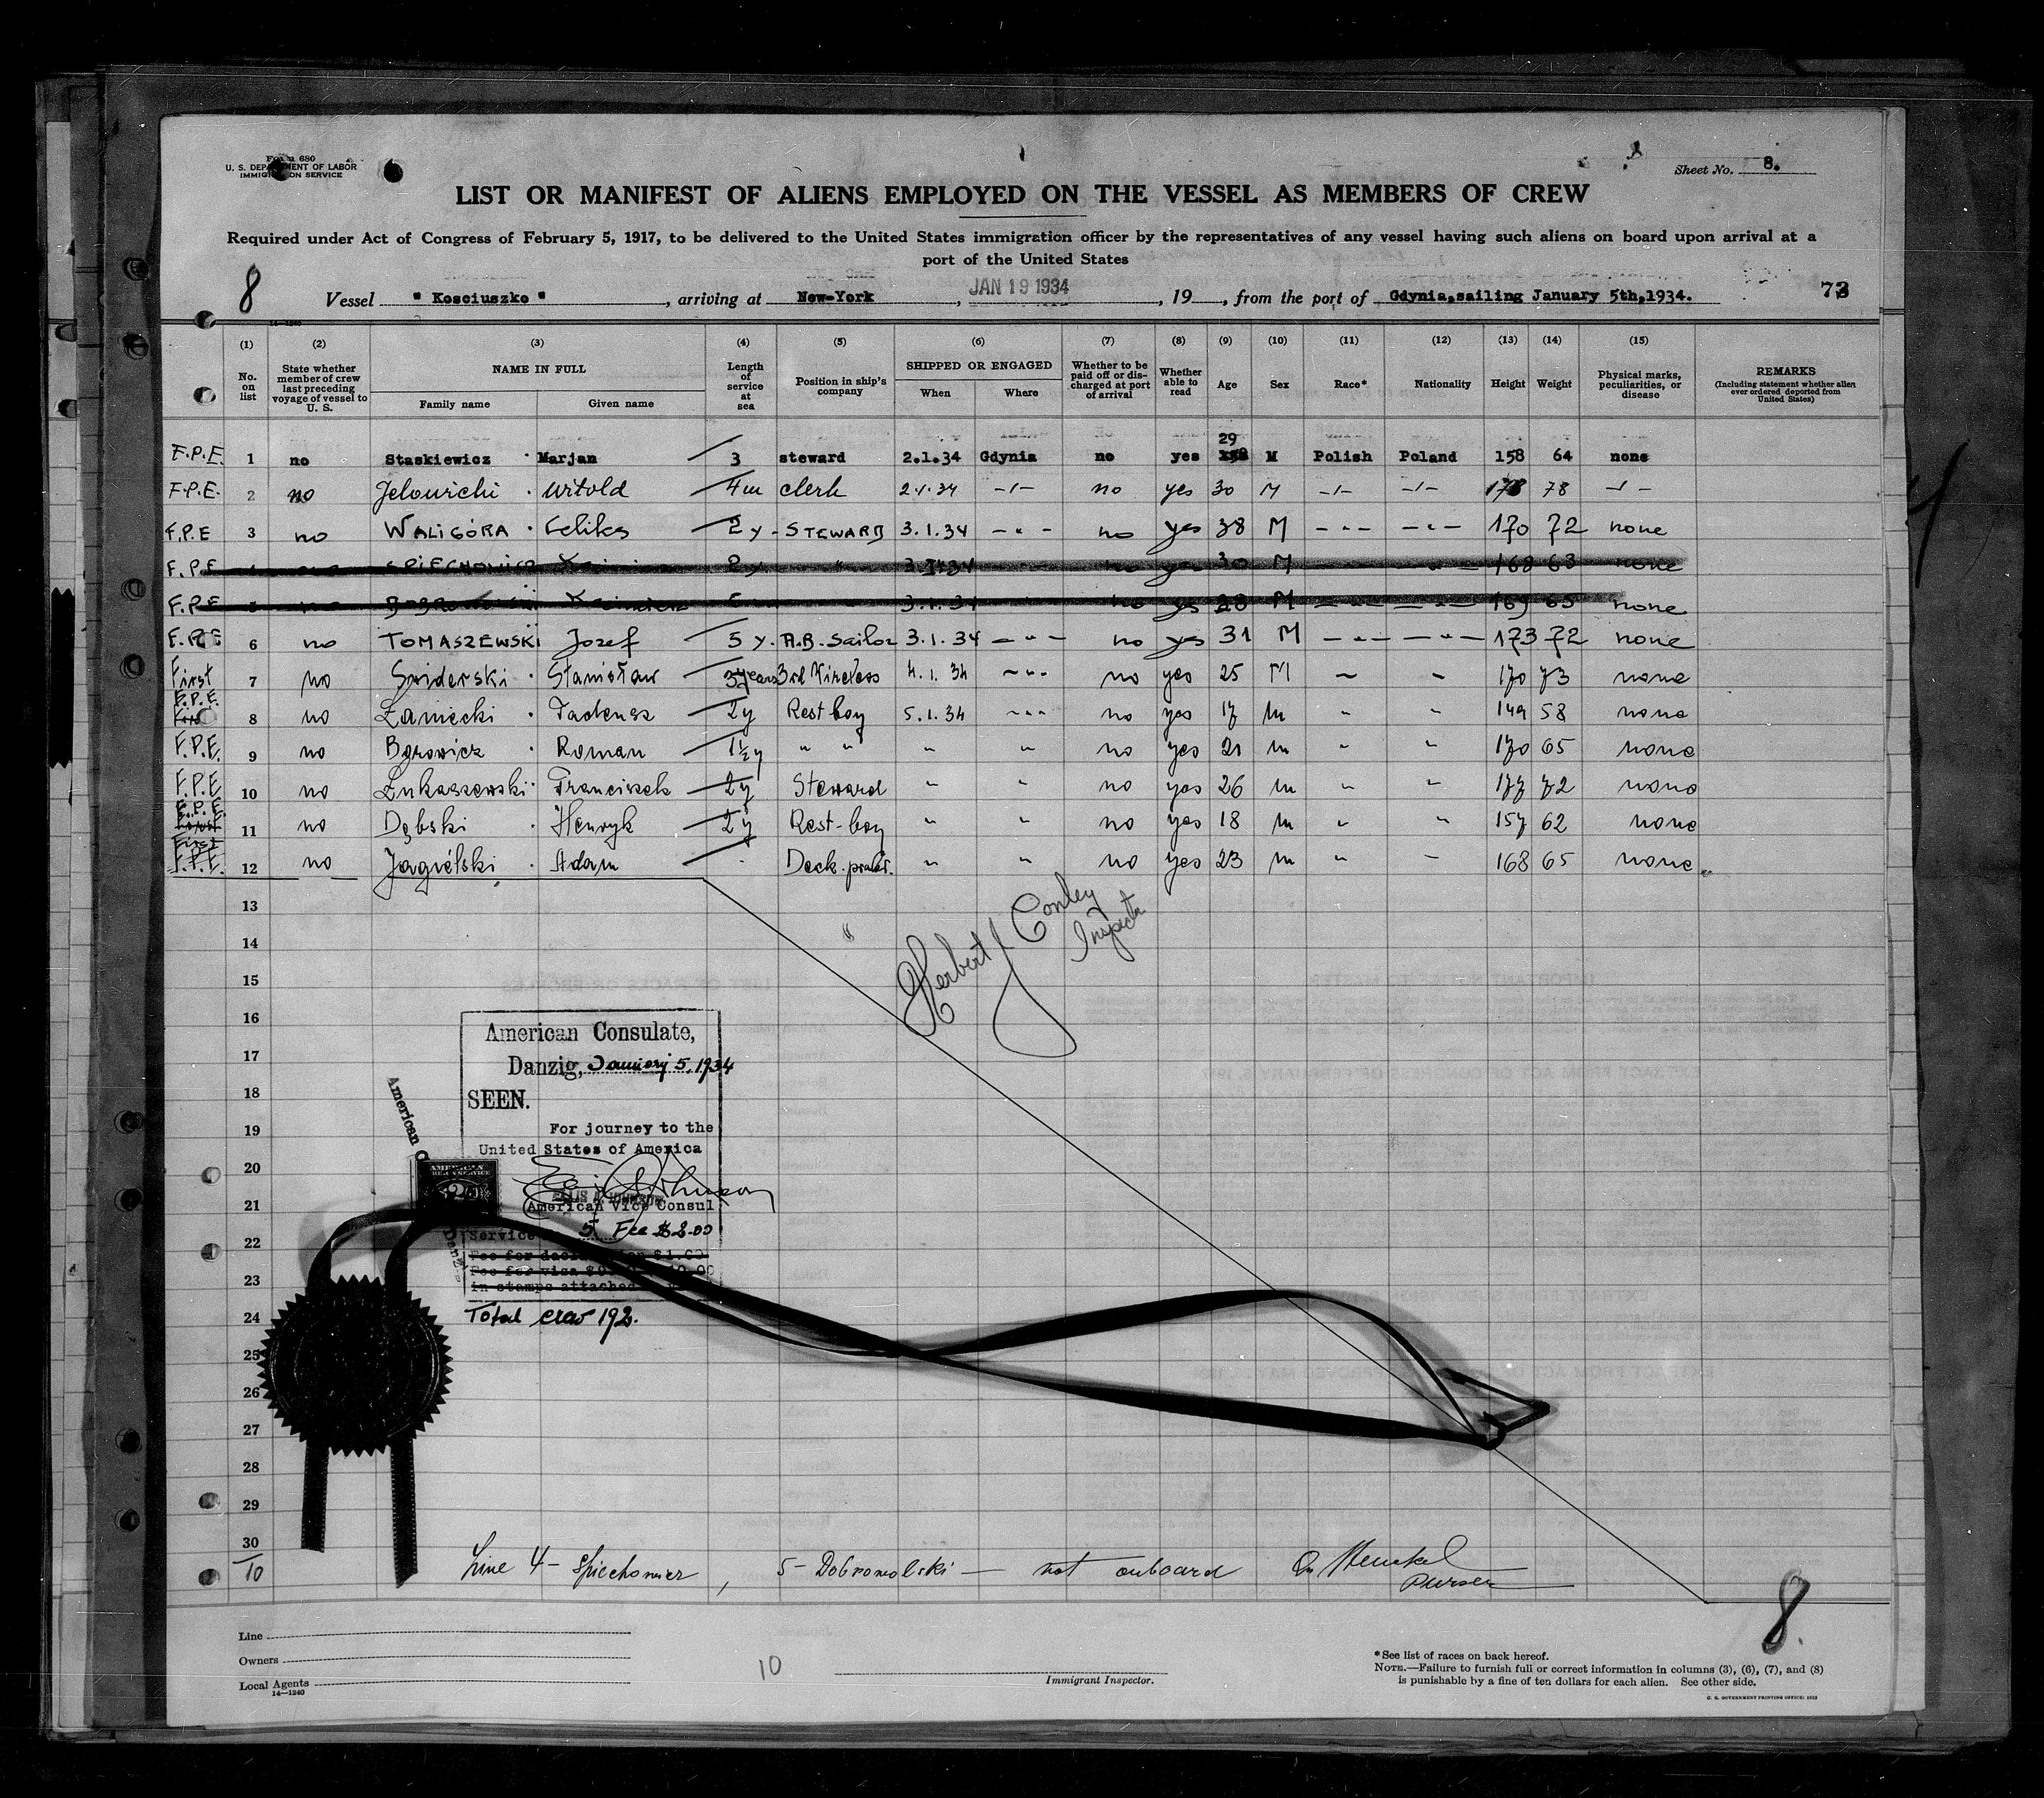 Form 680
U. S. DEPARTMENT OF LABOR
IMMIGRATION SERVICE
Sheet No. 8.
LIST OR MANIFEST OF ALIENS EMPLOYED ON THE VESSEL AS MEMBERS OF CREW
Required under Act of Congress of February 5, 1917, to be delivered to the United States immigration officer by the representatives of any vessel having such aliens on board upon arrival at a
port of the United States
8 Vessel "Kosciuszko", arriving at New-York, JAN 19 1934, 19 , from the port of Gdynia,sailing January 5th,1934. 73
14—1240
(1) (2) (3) (4) (5) (6) (7) (8) (9) (10) (11) (12) (13) (14) (15)
No. on list
State whether member of crew last preceding voyage of vessel to U. S.
NAME IN FULL
Family name Given name
Length of service at sea
Position in ship's company
SHIPPED OR ENGAGED
When Where
Whether to be paid off or discharged at port of arrival
Whether able to read
Age Sex Race* Nationality Height Weight
Physical marks, peculiarities, or disease
REMARKS
(Including statement whether alien ever ordered deported from United States)
F.P.E. 1 no Staskiewicz Marjan 3 steward 2.1.34 Gdynia no yes 29 M Polish Poland 158 64 none
F.P.E. 2 no Jelowicki Witold 4m clerk 2.1.34 -"- no yes 30 M -"- -"- 178 78 -"-
F.P.E 3 no WALIGÓRA Feliks 2 y- STEWARD 3.1.34 - " - no yes 38 M - " - - " - 170 72 none
F.P.E 2 y " 3.1.34 30 M 168 63 none
F.P.E 5 3.1.34 no yes 28 M 169 65 none
F.P.E 6 no TOMASZEWSKI Jozef 5 y. A.B. Sailor 3.1.34 - " - no yes 31 M - " - - " - 173 72 none
First 7 no Sniderski Stanisław 3 years 3rd Wireless 4.1.34 - " - no yes 25 M " " 170 73 none
F.P.E. 8 no Łaniecki Tadeusz 2y Rest boy 5.1.34 - " - no yes 17 m " " 149 58 none
F.P.E. 9 no Borowicz Roman 1½y " " " " no yes 21 m " " 170 65 none
F.P.E 10 no Łukaszewski Franciszek 2y Steward " " no yes 26 m " " 177 72 none
F.P.E. 11 no Dębski Henryk 2y Rest-boy " " no yes 18 m " " 157 62 none
First
F.P.E. 12 no Jagiełski Adam - Deck. " " no yes 23 m " " 168 65 none
13
14
15
16
17
18
19
20
21
22
23
24
25
26
27
28
29
30
Herbert J Conley
Inspector
American Consulate,
Danzig, January 5, 1934
SEEN.
For journey to the
United States of America
ELLIS A. JOHNSON
American Vice Consul
Service 5 Fee $2.00
Fee for visa $
in stamps attached
Total crew 192.
10 Line 4 - Spiechowicz, 5 - Dobrowolski - not onboard Henckel
Purser
8.
Line
Owners
Local Agents
14—1240
10
Immigrant Inspector.
*See list of races on back hereof.
NOTE.—Failure to furnish full or correct information in columns (3), (6), (7), and (8)
is punishable by a fine of ten dollars for each alien. See other side.
U. S. GOVERNMENT PRINTING OFFICE: